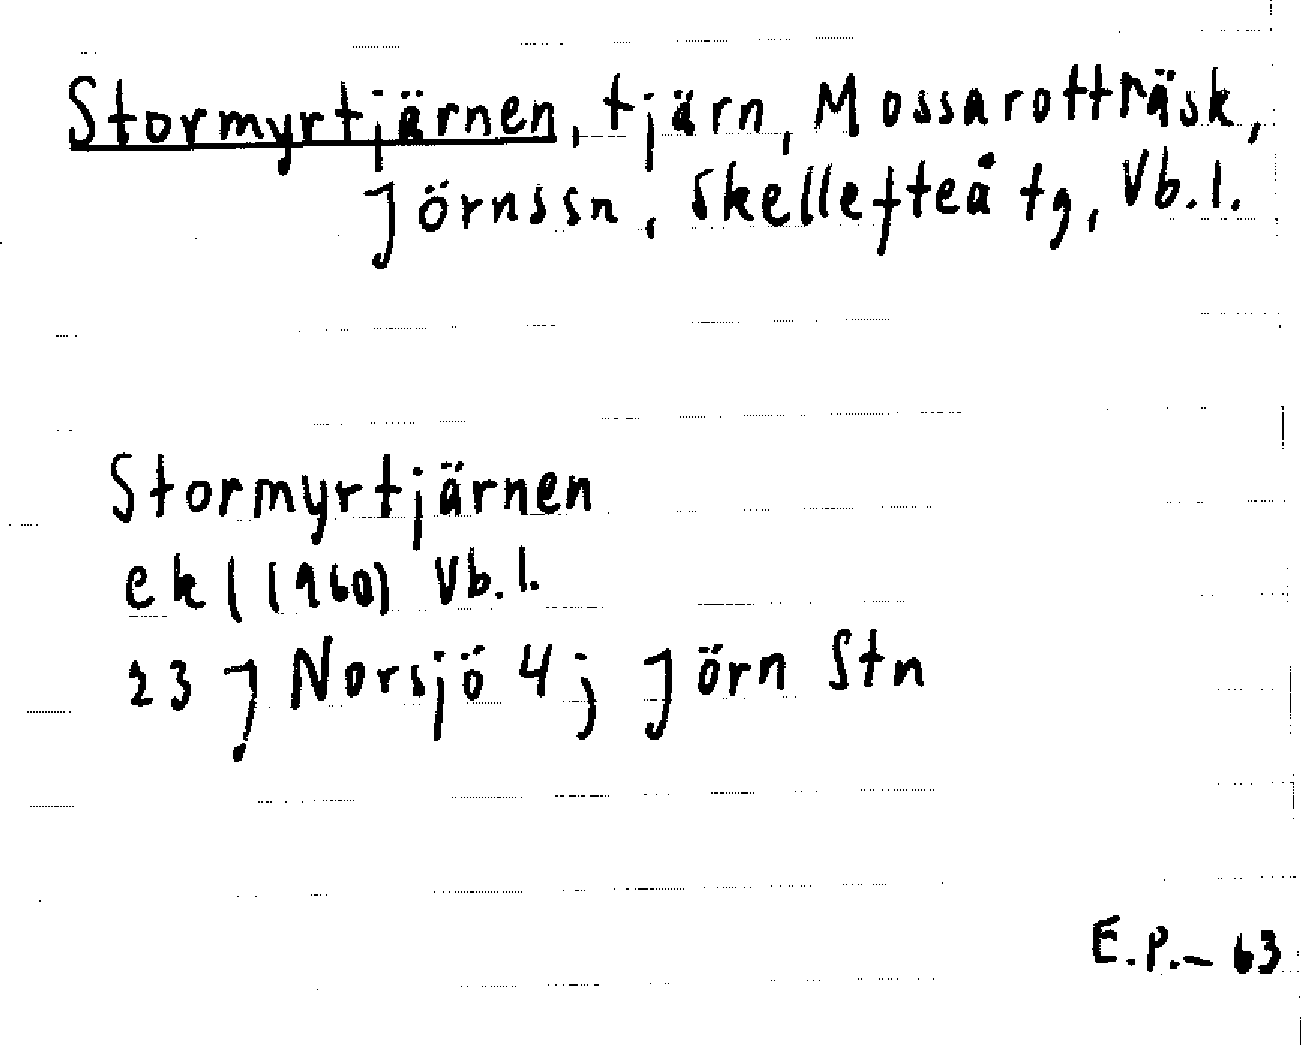 Stormyrtjärnen, tjärn, Mossarotträsk,
Jörnssn, Skellefteå tg, Vb.l.
Stormyrtjärnen
ekl (1960) Vb.l.
23 J Norsjö 4 j Jörn Stn
E.P.– 63